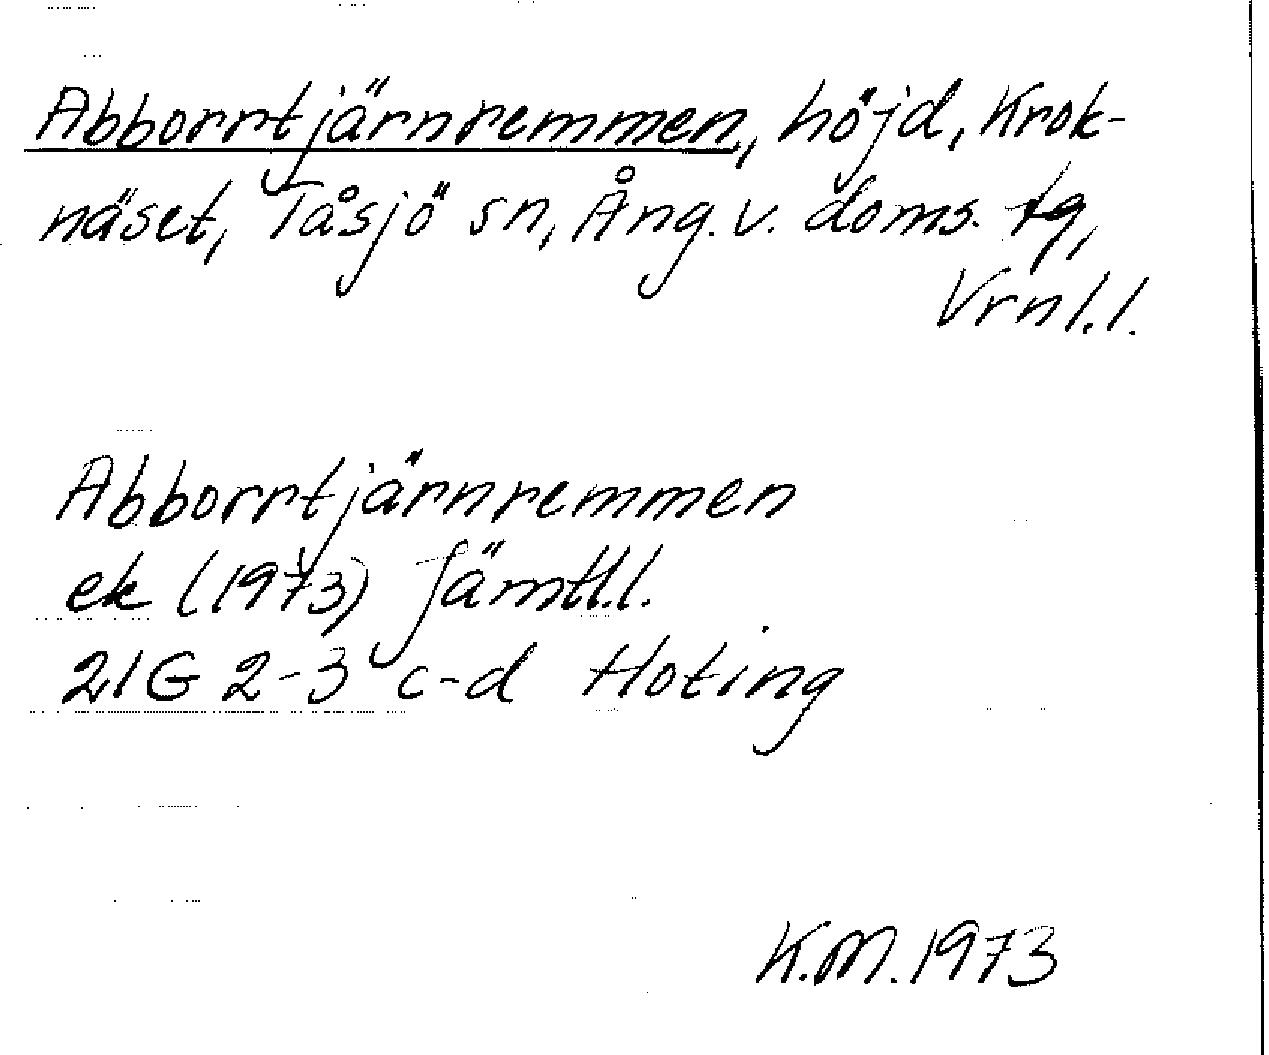 Abborrtjärnremmen, höjd, Krok-
näset, Tåsjö sn, Ång. v. doms. tg,
Vrnl.l.
Abborrtjärnremmen
ek (1973) Jämtl.l.
21G 2-3 c-d Hoting
K.M. 1973